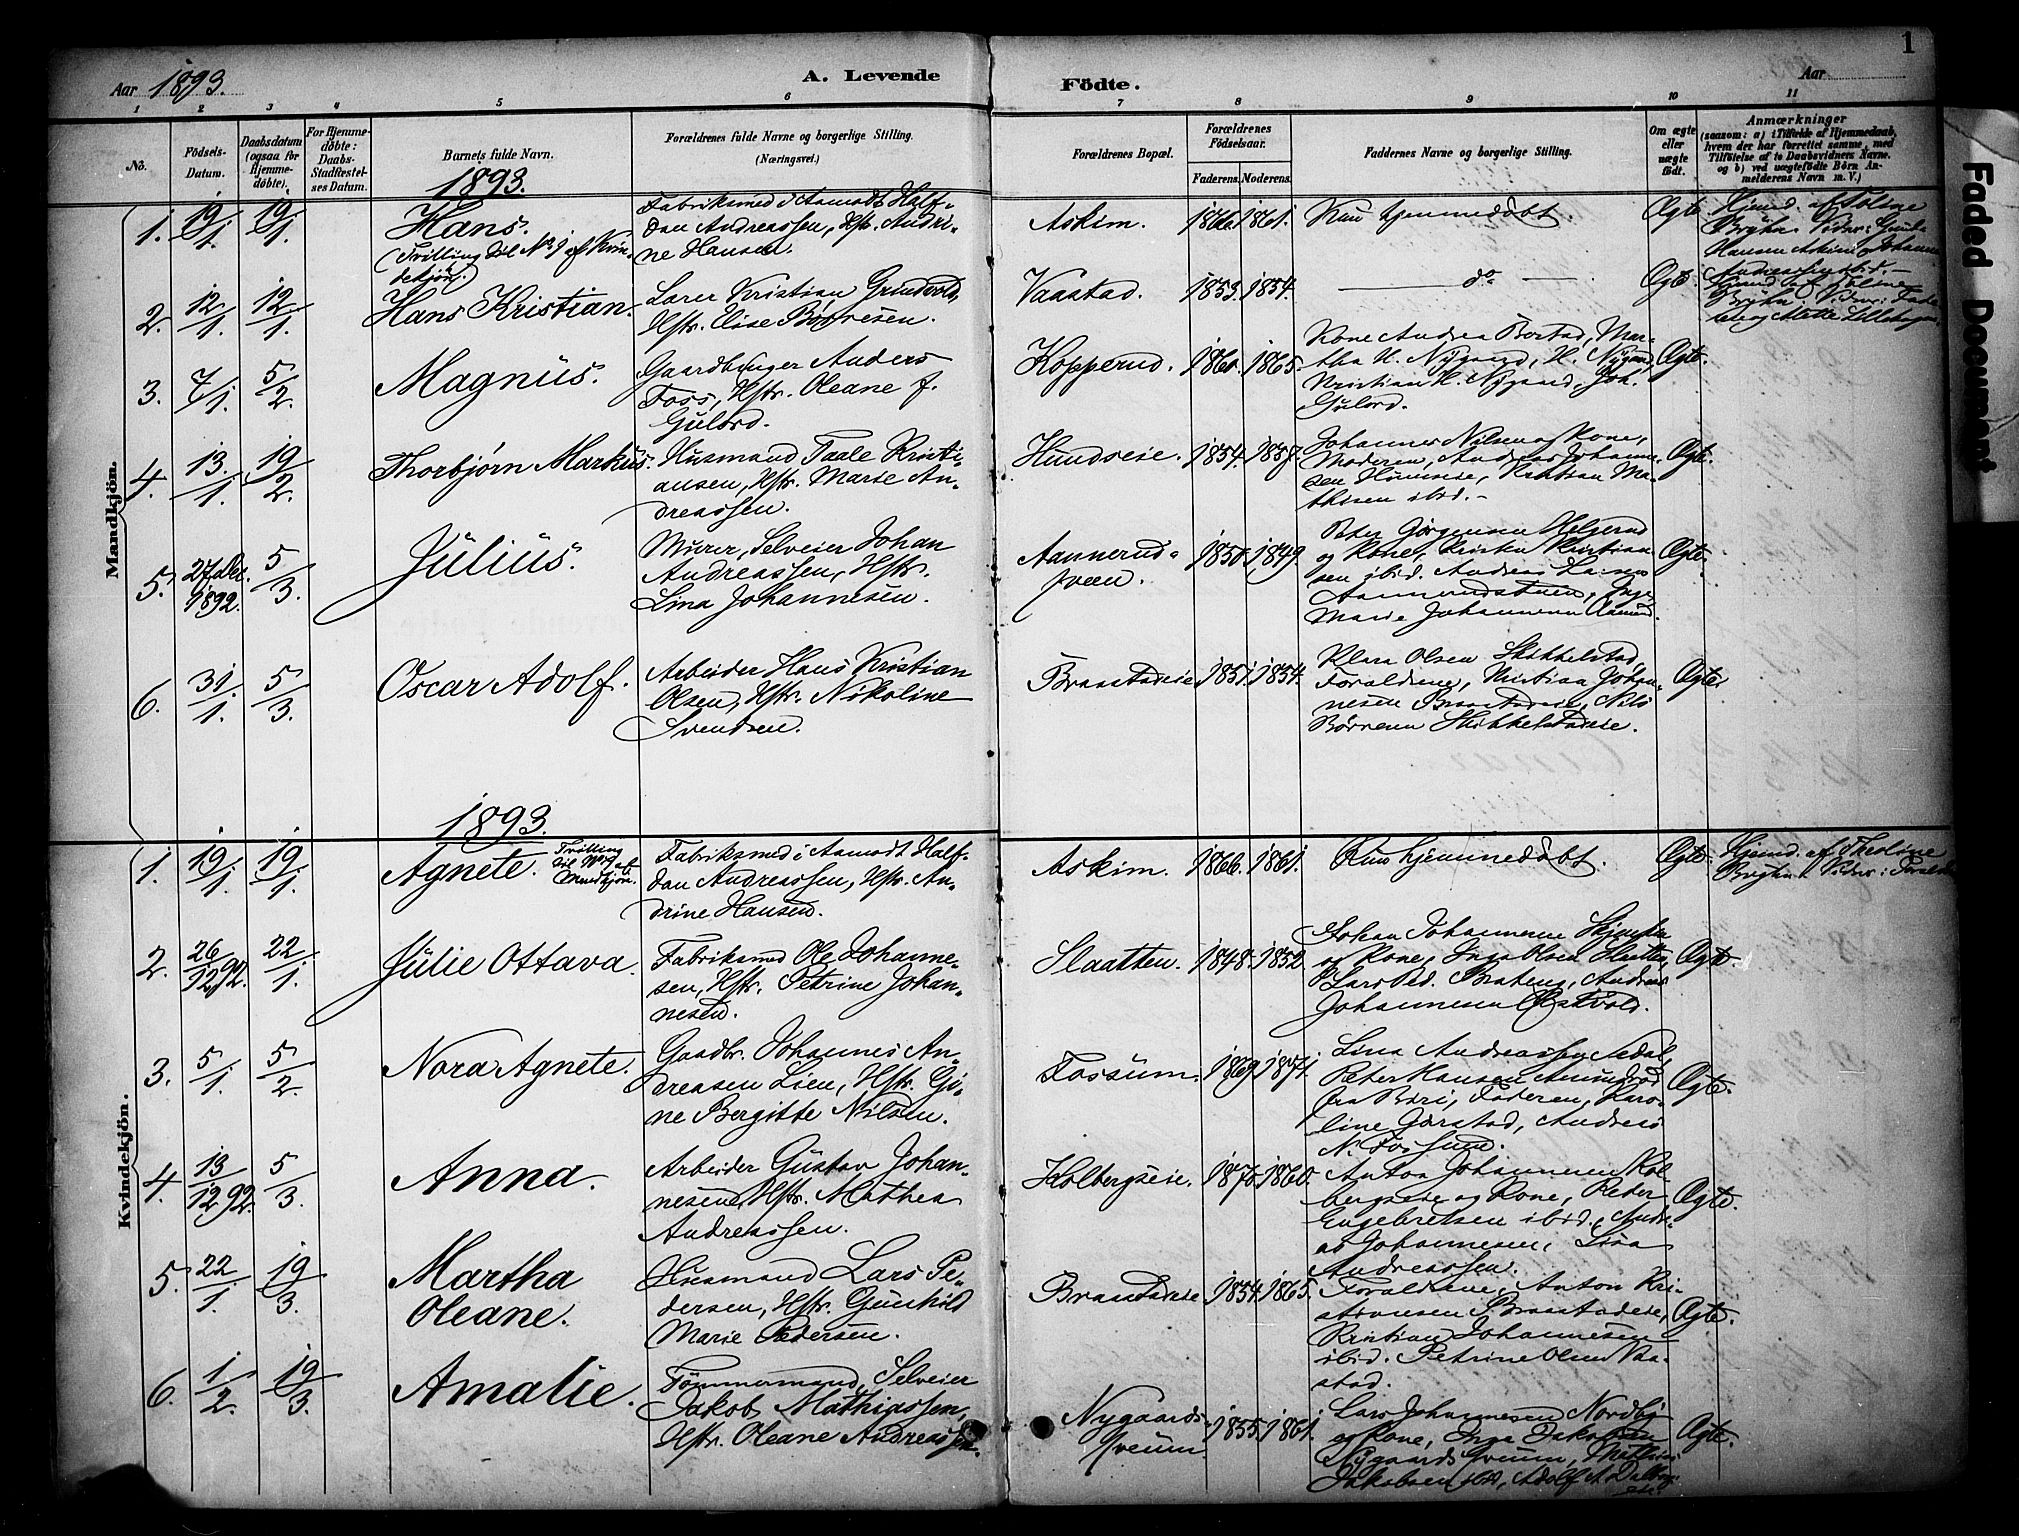 Aar 1893.
A. Levende Födte.
Aar
1
1 2 3 4 5 6 7 8 9 10 11
No.
Födsels-Datum.
Daabsdatum (ogsaa for Hjemmedöbte).
For Hjemmedöbte: Daabs-Stadfæstelses Datum.
Barnets fulde Navn.
Forældrenes fulde Navne og borgerlige Stilling. (Næringsvei.)
Forældrenes Bopæl.
Forældrenes Födselsaar.
Faderens. Moderens.
Faddernes Navne og borgerlige Stilling.
Om ægte eller uægte födt.
Anmærkninger
(saasom: a) i Tilfælde af Hjemmedaab, hvem der har forrettet samme, med Tilföielse af to Daabsvidners Navne, og b) ved uægtefödte Börn Anmelderens Navn m. V.)
Faded Document
Mandkjön.
1893.
1. 19/1 19/1 Hans.
(Tvilling til No 1 af Kvindekjön)
Fabriksmed i Aamodt Halfdan Andreassen, Hstr. Andrine Hansen.
Askim. 1866. 1861. Kun hjemmedöbt. Ægte
2. 12/1 12/1 Hans Kristian.
Lærer Kristian Grindvold, Hstr. Elise Børresen.
Vaastad. 1853. 1854. do Ægte.
3. 7/1. 5/2. Magnus.
Gaardbruger Anders Foss, Hstr. Oleane f. Gulord.
Kopperud. 1860. 1865.
Kone Andrea Borstad, Martha H. Nygaard, H. Nygaard, Kristian H. Nygaard, Joh. Gulord. Ægte.
4. 13/1. 19/2. Thorbjørn Markus.
Husmand Taale Kristiansen, Hstr. Marie Andreassen.
Hundseie. 1854. 1857.
Johannes Nilsen og Kone, Moderen, Andreas Johannesen, Kristian Mathisen ibid. Ægte.
5. 27 Dec. 1892. 5/3. Julius.
Murer, Selveier Johan Andreassen, Hstr. Lina Johannesen.
1850. 1849.
og Kone, Kristen Kristiansen ibid. Andreas Marie Johannesen Ægte.
6. 31/1. 5/3. Oscar Adolf.
Arbeider Hans Kristian Olsen, Hstr. Nikoline Svendsen.
Braastadeie. 1851. 1854.
Klara Olsen Skikkelstad, Forældrene, Kristian Johannesen Braastadeie, Nils Skikkelstadeie. Ægte.
Kvindekjön.
1893.
1. 19/1. 19/1 Agnete.
Tvilling til No 1 af Mandkjön.
Fabriksmed i Aamodt Halfdan Andreassen, Hstr. Andrine Hansen.
Askim. 1866. 1861. Kun hjemmedöbt. Ægte.
Hjemd. af
2. 26/12 92. 22/1. Julie Ottava.
Fabriksmed Ole Johannesen, Hstr. Petrine Johannesen.
Slaatten. 1848. 1852.
Johan Johannesen og Kone, Inga Olsen Lars Ped. Braten, Andreas Johannesen Østvold. Ægte.
3. 5/1. 5/2. Nora Agnete.
Gaardbr. Johannes Andreasen Lien, Hstr. Gine Bergitte Nilsen.
Fossum. 1869. 1871.
Lina Andreassen Peter Hansen fra Faderen, Karoline Andreas N. Fossum. Ægte.
4. 13/12 92. 5/3. Anna.
Arbeider Gustav Johannesen, Hstr. Mathea Andreassen.
Kolbergseie. 1870. 1860.
Anton Johannesen Kolbergseie og Kone, Peder Engebretsen ibid., Andreas Johannesen, Lina Andreassen. Ægte.
5. 22/1. 19/3. Martha Oleane.
Husmand Lars Pedersen, Hstr. Gunhild Marie Pedersen.
Braastadeie. 1854. 1865.
Forældrene, Anton Kristensen Braastadeie, Kristian Johannesen ibid. Petrine Olsen Vaastad. Ægte.
6. 1/2. 19/3. Amalie.
Tømmermand, Selveier Jakob Mathiassen, Hstr. Oleane Andreassen.
Nygaardsveum 1855. 1861.
Lars Johannesen Nordby og Kone, Inge Jakobsen Nygaardsveum, Jakobsen ibid, Adolf Ægte.